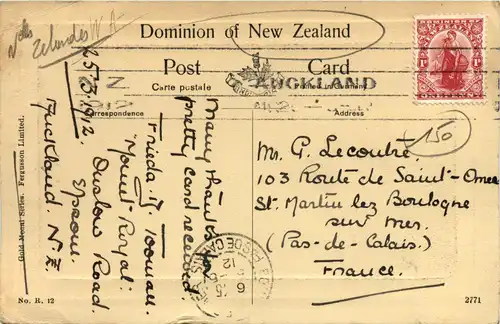 Nelles
Zelandes N A
Dominion of New Zealand
Post Card
Carte postale
Printed in Germany
AUCKLAND
Correspondence
Address
1D
1D
150
25.3.1912
Many thanks for
pretty card received.
Frieda J.
"Mount Royal"
Onslow Road.
Epsom.
Auckland. N.Z.
Mr. G. Lecoutre,
103 Route de Saint-Omer
St. Martin lez Boulogne
sur mer.
(Pas-de-Calais)
France.
PAS DE CALAIS
6 15
12
Gold Medal Series. Fergusson Limited.
No. R. 12
2771